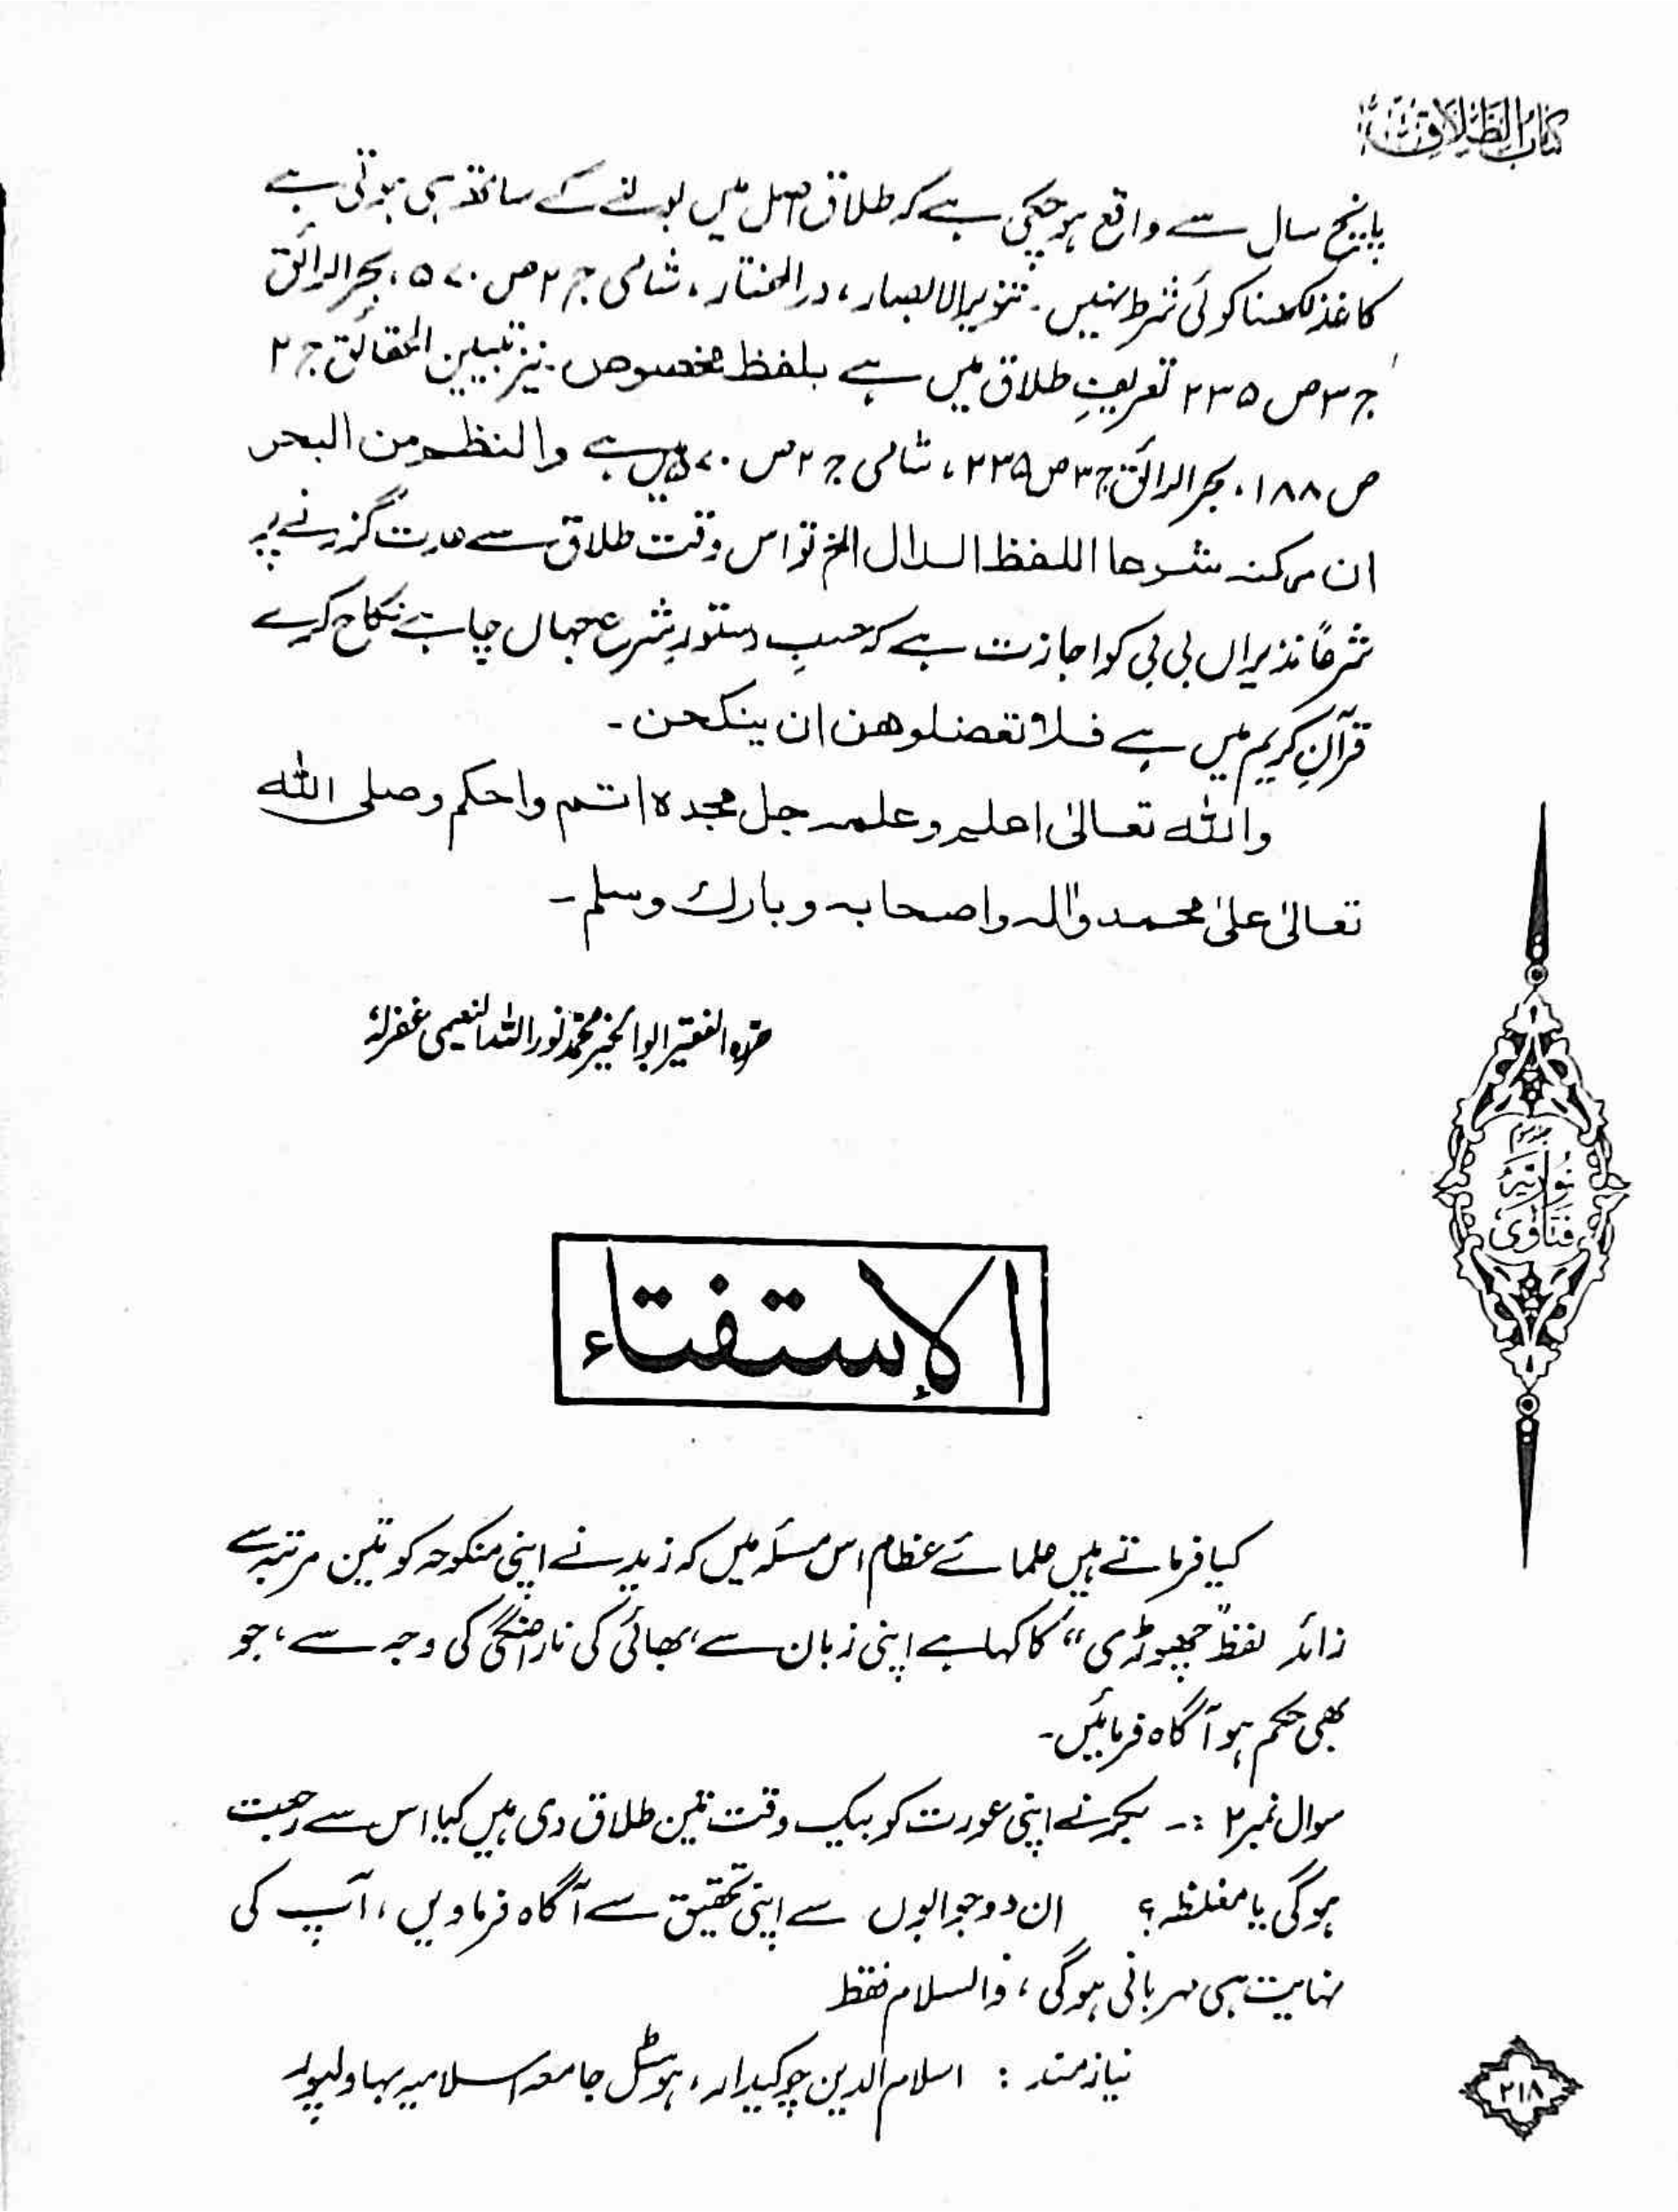 کتاب الطلاق
پانچ سال سے واقع ہو چکی ہے کہ طلاق اصل میں بولنے کے ساتھ ہی ہوتی ہے
کاغذ لکھنا کوئی شرط نہیں۔ تنویر الابصار، در المختار، شامی ج ۲ ص ۵۷۰، بحر الرائق
ج ۳ ص ۲۳۵ تعریفِ طلاق میں ہے بلفظ مخصوص۔ نیز تبیین الحقائق ج ۲
ص ۱۸۸، بحر الرائق ج ۳ ص ۲۳۵، شامی ج ۲ ص ۵۷۰ میں ہے والنظم من البحر
ان رکنہ شرعا اللفظ الدال الخ تو اس وقت طلاق سے عدت گزرنے پر
شرعًا نذیراں بی بی کو اجازت ہے کہ حسبِ دستورِ شرع جہاں چاہے نکاح کرے
قرآنِ کریم میں ہے فلا تعضلوھن ان ینکحن۔
واللہ تعالیٰ اعلم وعلمہ جل مجدہ اتم واحکم وصلی اللہ
تعالیٰ علیٰ محمد واٰلہ واصحابہ وبارک وسلم۔
حررہ الفقیر ابوالخیر محمد نور اللہ النعیمی غفرلہٗ
الإستفتاء
کیا فرماتے ہیں علمائے عظام اس مسئلہ میں کہ زید نے اپنی منکوحہ کو تین مرتبہ سے
زائد لفظ "چھوڑی" کا کہا ہے اپنی زبان سے، بھائی کی ناراضگی کی وجہ سے، جو
بھی حکم ہو آگاہ فرمائیں۔
سوال نمبر ۲ :۔ بکر نے اپنی عورت کو بیک وقت تین طلاق دی ہیں کیا اس سے رجعت
ہوگی یا مغلظہ؟ ان دو جوابوں سے اپنی تحقیق سے آگاہ فرماویں، آپ کی
نہایت ہی مہربانی ہوگی، والسلام فقط
نیازمند : اسلام الدین چوکیدار، ہوسٹل جامعہ اسلامیہ بہاولپور
فتاوٰی
نوریہ
۲۱۸